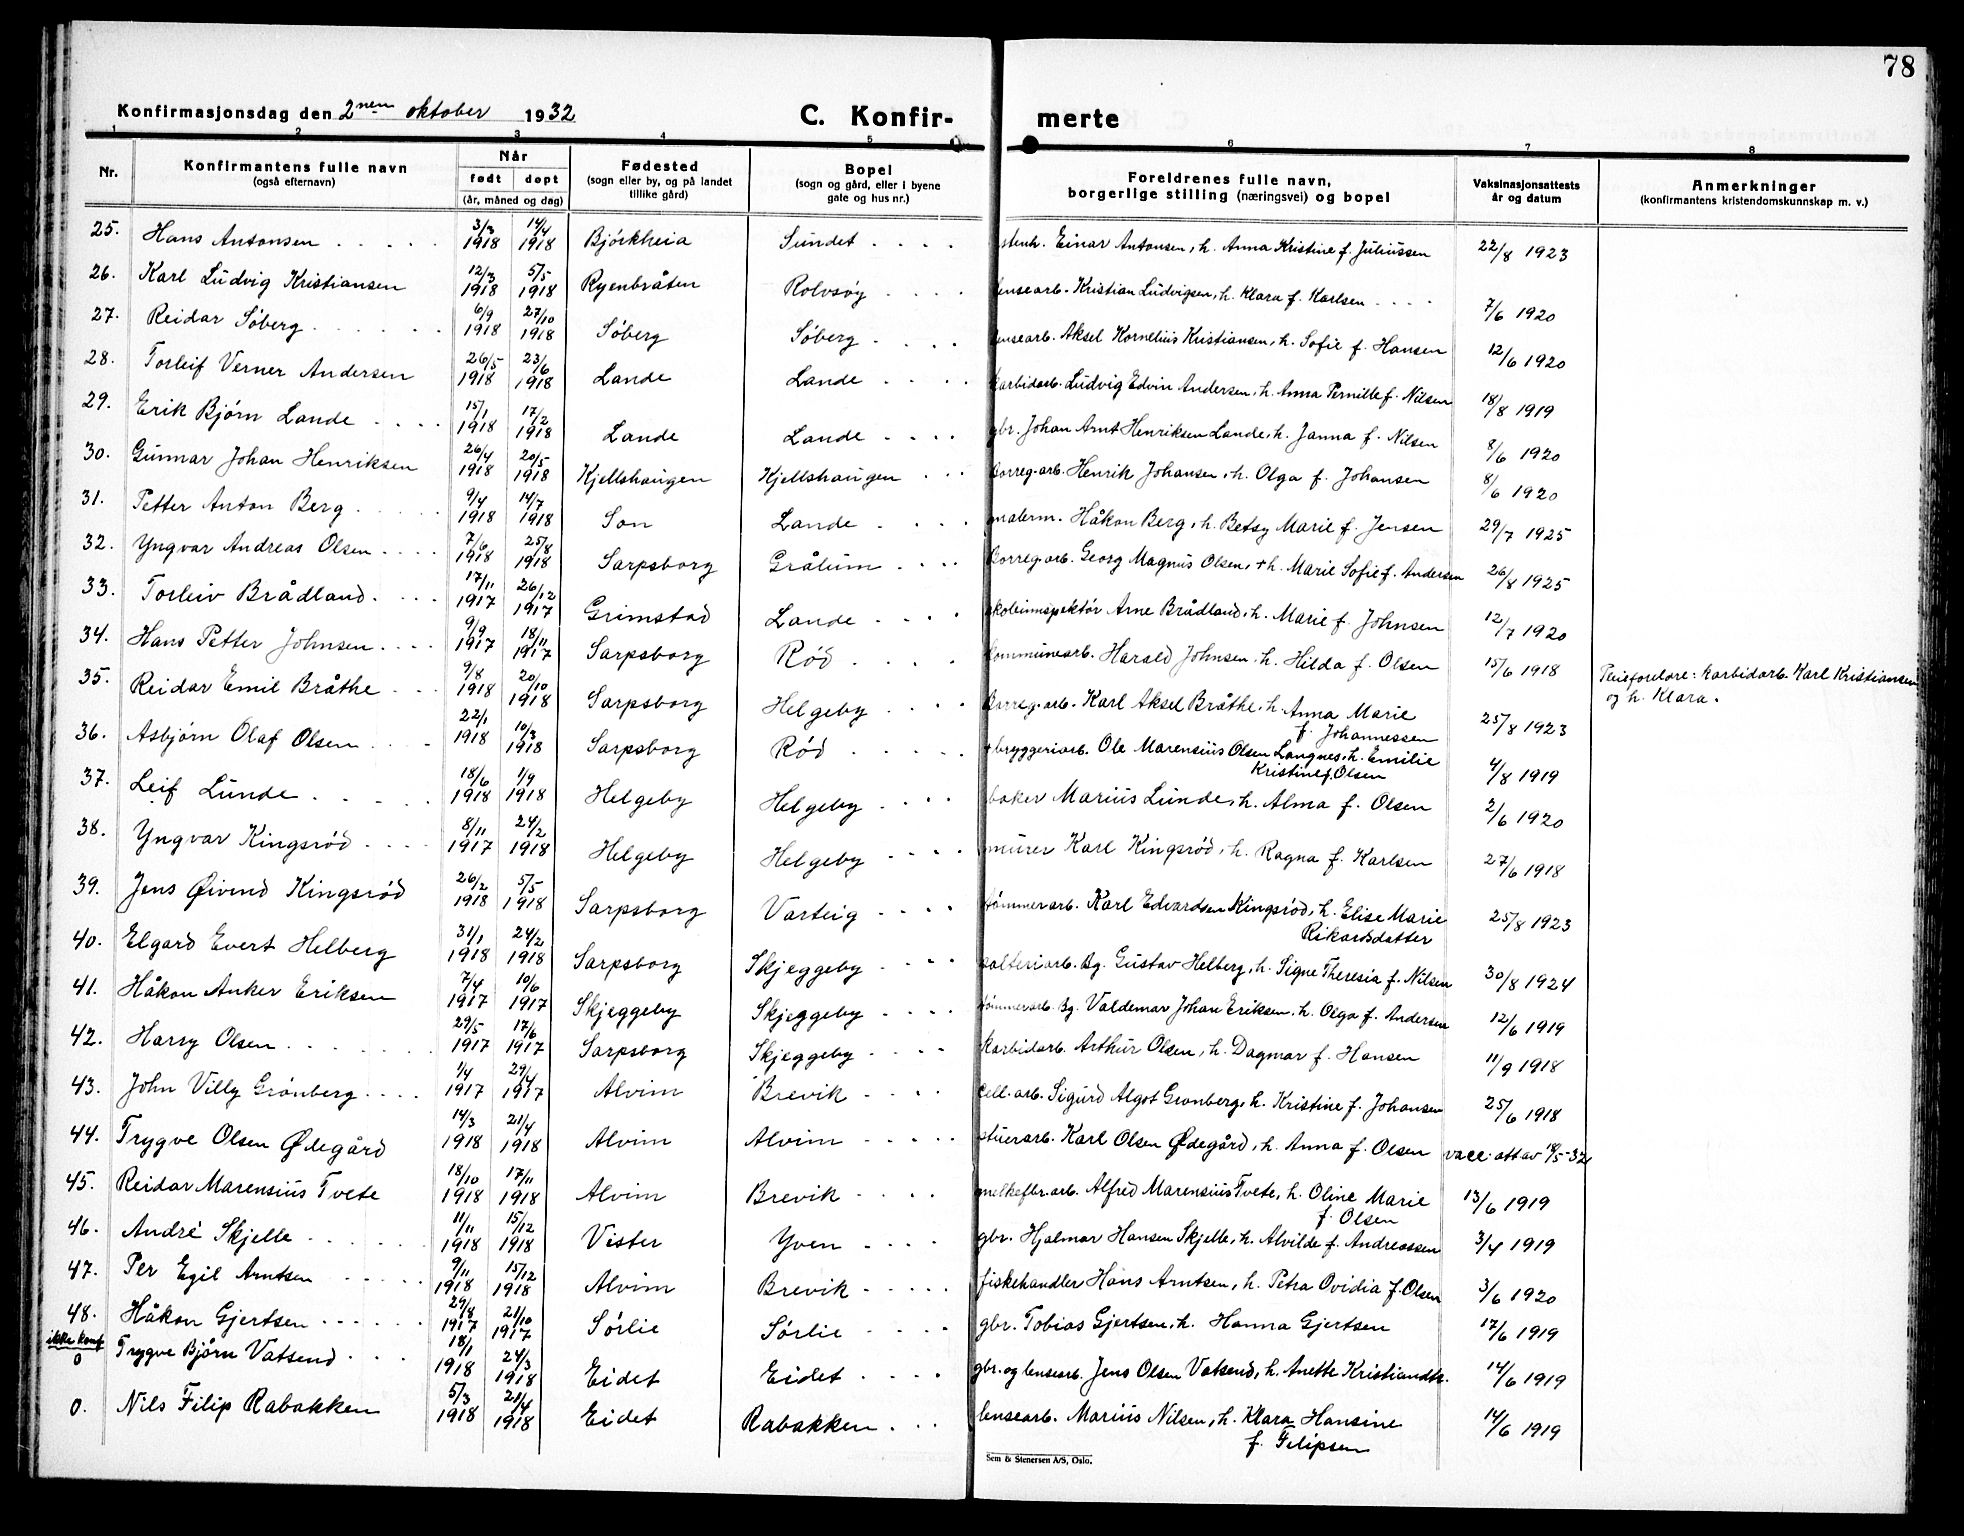 78
Konfirmasjonsdag den 2nen oktober 1932
C. Konfir- merte
1 2 3 4 5 6 7 8
Nr. Konfirmantens fulle navn (også efternavn) Når født døpt (år, måned og dag) Fødested (sogn eller by, og på landet tillike gård) Bopel (sogn og gård, eller i byene gate og hus nr.) Foreldrenes fulle navn, borgerlige stilling (næringsvei) og bopel Vaksinasjonsattests år og datum Anmerkninger (konfirmantens kristendomskunnskap m. v.)
25. Hans Antonsen 3/3 1918 14/4 1918 Bjørkheia Sundet Einar Antonsen, h. Anna Kristine f. Juliussen 22/8 1923
26. Karl Ludvig Kristiansen 12/3 1918 5/5 1918 Ryenbråten Rolvsøy lensearb. Kristian Ludvigsen, h. Klara f. Karlsen 7/6 1920
27. Reidar Søberg 6/9 1918 27/10 1918 Søberg Søberg lensearb. Aksel Kornelius Kristiansen, h. Sofie f. Hansen 12/6 1920
28. Torleif Verner Andersen 26/5 1918 23/6 1918 Lande Lande karbidarb. Ludvig Edvin Andersen, h. Anna Pernille f. Nilsen 18/8 1919
29. Erik Bjørn Lande 15/1 1918 17/2 1918 Lande Lande gbr. Johan Arnt Henriksen Lande, h. Janna f. Nilsen 8/6 1920
30. Gunnar Johan Henriksen 26/4 1918 20/5 1918 Kjellshaugen Kjellshaugen Borreg.arb. Henrik Johansen, h. Olga f. Johansen 8/6 1920
31. Petter Anton Berg 9/4 1918 14/7 1918 Son Lande malerm. Håkon Berg, h. Betsy Marie f. Jensen 29/7 1925
32. Yngvar Andreas Olsen 7/6 1918 25/8 1918 Sarpsborg Grålum Borreg.arb. Georg Magnus Olsen, +h. Marie Sofie f. Andersen 26/8 1925
33. Torleiv Brådland 17/11 1917 26/12 1917 Grimstad Lande skoleinspektør Arne Brådland, h. Marie f. Johnsen 12/7 1920
34. Hans Petter Johnsen 9/9 1917 18/11 1917 Sarpsborg Rød kommunearb. Harald Johnsen, h. Hilda f. Olsen 15/6 1918 Pleieforeldre: karbidarb. Karl Kristiansen
og h. Klara.
35. Reidar Emil Bråthe 9/8 1918 20/10 1918 Sarpsborg Helgeby Borreg.arb. Karl Aksel Bråthe, h. Anna Marie
f. Johannessen 25/8 1923
36. Asbjørn Olaf Olsen 22/1 1918 10/3 1918 Sarpsborg Rød + bryggeriarb. Ole Marensius Olsen Langnes, h. Emilie
Kristine f. Olsen 4/8 1919
37. Leif Lunde 18/6 1918 1/9 1918 Helgeby Helgeby baker Marius Lunde, h. Alma f. Olsen 2/6 1920
38. Yngvar Kingsrød 8/11 1917 24/2 1918 Helgeby Helgeby murer Karl Kingsrød, h. Ragna f. Karlsen 27/6 1918
39. Jens Øivind Kingsrød 26/2 1918 5/5 1918 Sarpsborg Varteig tømmerarb. Karl Edvardsen Kingsrød, h. Elise Marie
Rikardsdatter 25/8 1923
40. Elgard Evert Helberg 31/1 1918 24/2 1918 Sarpsborg Skjeggeby Bg. Gustav Helberg, h. Signe Theresia f. Nilsen 30/8 1924
41. Håkon Anker Eriksen 7/4 1917 10/6 1917 Skjeggeby Skjeggeby tømmerarb. Bg. Valdemar Johan Eriksen, h. Olga f. Andersen 12/6 1919
42. Harry Olsen 29/5 1917 17/6 1917 Sarpsborg Skjeggeby karbidarb. Arthur Olsen, h. Dagmar f. Hansen 11/9 1918
43. John Villy Grønberg 1/4 1917 29/4 1917 Alvim Brevik cell.arb. Sigurd Algot Grønberg, h. Kristine f. Johansen 25/6 1918
44. Trygve Olsen Ødegård 14/3 1918 21/4 1918 Alvim Alvim stuerarb. Karl Olsen Ødegård, h. Anna f. Olsen vacc. att av 18/5-32
45. Reidar Marensius Tvete 18/10 1918 17/11 1918 Alvim Brevik melkefbr.arb. Alfred Marensius Tvete, h. Oline Marie
f. Olsen 13/6 1919
46. André Skjelle 11/11 1918 15/12 1918 Vister Yven gbr. Hjalmar Hansen Skjelle, h. Alvilde f. Andreassen 3/4 1919
47. Per Egil Arntsen 9/11 1918 15/12 1918 Alvim Brevik fiskehandler Hans Arntsen, h. Petra Ovidia f. Olsen 3/6 1920
48. Håkon Gjertsen 29/8 1917 21/10 1917 Sørlie Sørlie gbr. Tobias Gjertsen, h. Hanna Gjertsen 17/6 1919
ikke konf
0 Trygve Bjørn Vatsend 18/1 1918 24/3 1918 Eidet Eidet gbr. og lensearb. Jens Olsen Vatsend, h. Anette Kristiandtr. 14/6 1919
0. Nils Filip Rabakken 5/3 1918 21/4 1918 Eidet Rabakken lensearb. Marius Nilsen, h. Klara Hansine
f. Filipsen 14/6 1919
Sem & Stenersen A/S, Oslo.